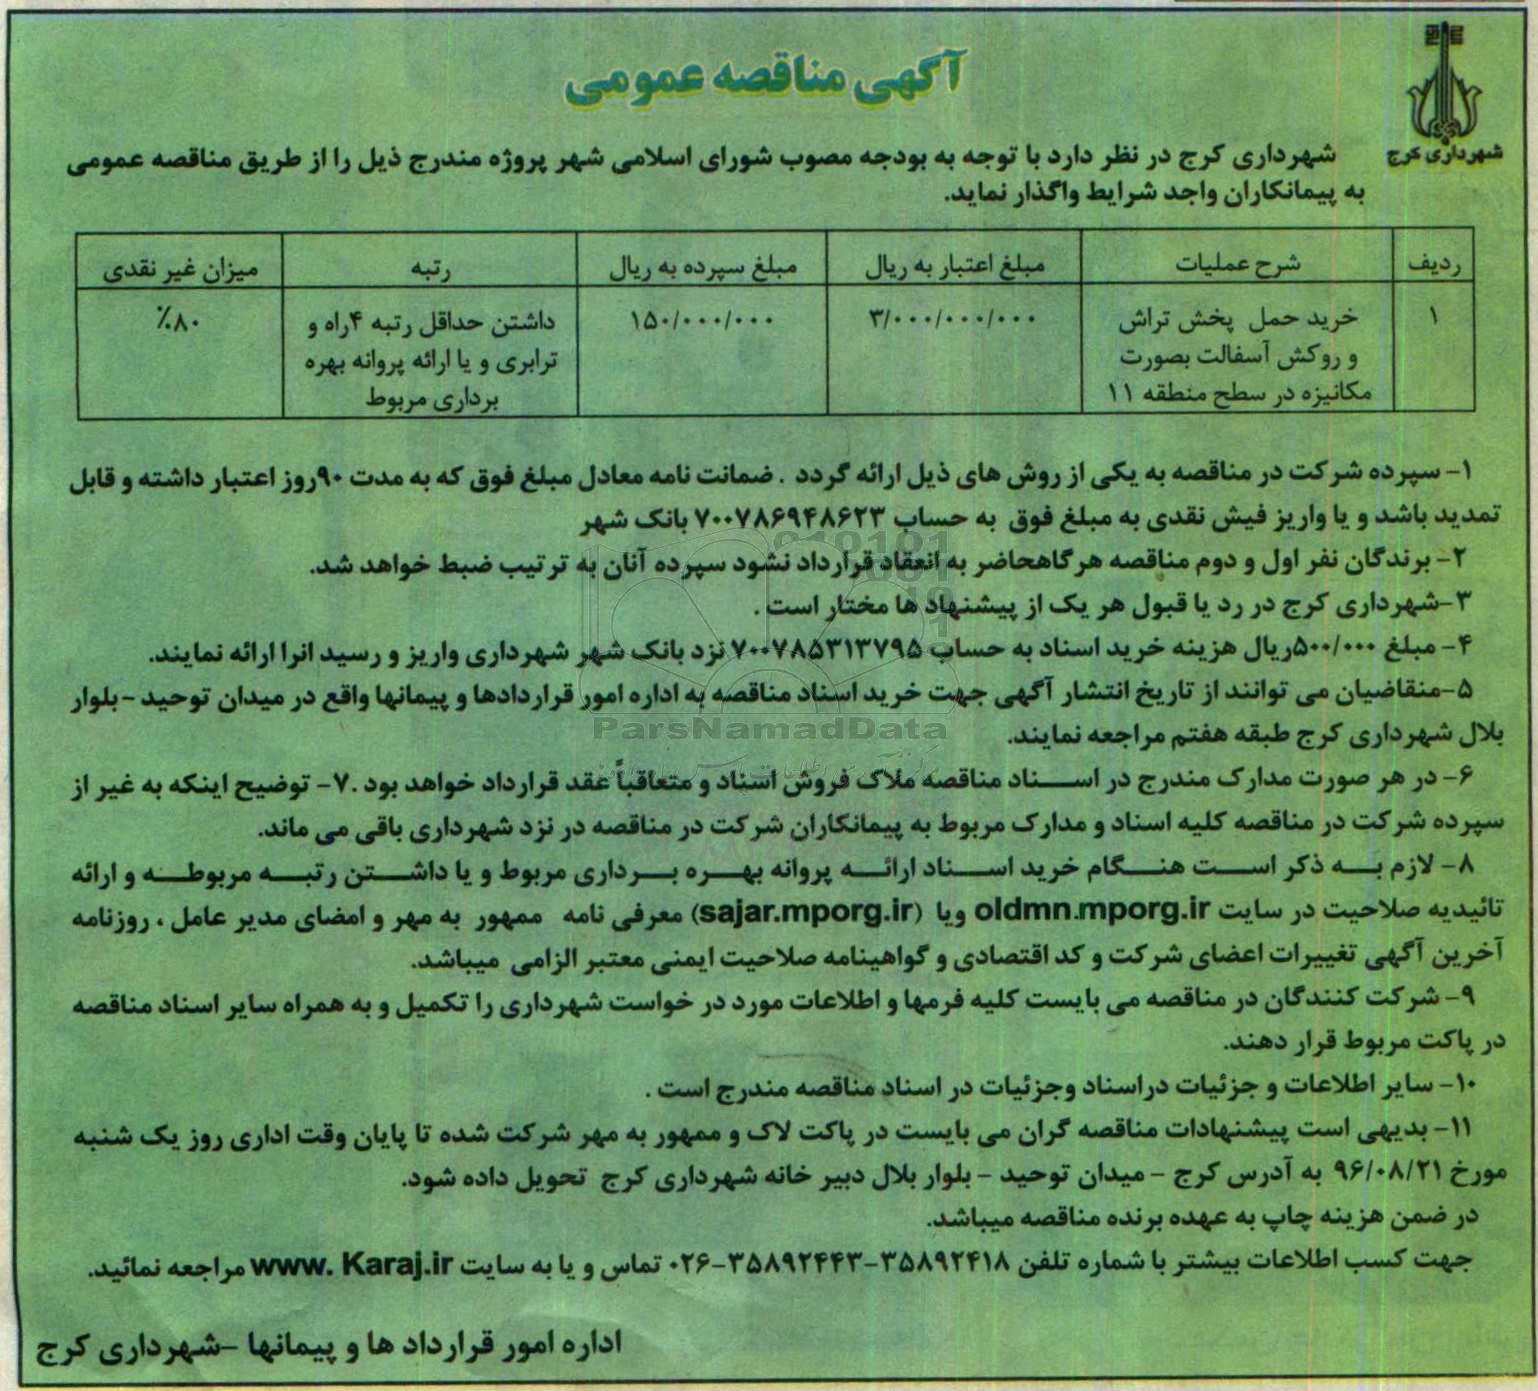 شهرداری کرج
آگهی مناقصه عمومی
شهرداری کرج در نظر دارد با توجه به بودجه مصوب شورای اسلامی شهر پروژه مندرج ذیل را از طریق مناقصه عمومی
به پیمانکاران واجد شرایط واگذار نماید.
ردیف شرح عملیات مبلغ اعتبار به ریال مبلغ سپرده به ریال رتبه میزان غیر نقدی
۱ خرید حمل پخش تراش ۳/۰۰۰/۰۰۰/۰۰۰ ۱۵۰/۰۰۰/۰۰۰ داشتن حداقل رتبه ۴راه و ٪۸۰
و روکش آسفالت بصورت ترابری و یا ارائه پروانه بهره
مکانیزه در سطح منطقه ۱۱ برداری مربوط
۱- سپرده شرکت در مناقصه به یکی از روش های ذیل ارائه گردد . ضمانت نامه معادل مبلغ فوق که به مدت ۹۰روز اعتبار داشته و قابل
تمدید باشد و یا واریز فیش نقدی به مبلغ فوق به حساب ۷۰۰۷۸۶۹۴۸۶۲۳ بانک شهر
۲- برندگان نفر اول و دوم مناقصه هرگاهحاضر به انعقاد قرارداد نشود سپرده آنان به ترتیب ضبط خواهد شد.
۳-شهرداری کرج در رد یا قبول هر یک از پیشنهاد ها مختار است .
۴- مبلغ ۵۰۰/۰۰۰ریال هزینه خرید اسناد به حساب ۷۰۰۷۸۵۳۱۳۷۹۵ نزد بانک شهر شهرداری واریز و رسید انرا ارائه نمایند.
۵-متقاضیان می توانند از تاریخ انتشار آگهی جهت خرید اسناد مناقصه به اداره امور قراردادها و پیمانها واقع در میدان توحید -بلوار
بلال شهرداری کرج طبقه هفتم مراجعه نمایند.
ParsNamadData
۶- در هر صورت مدارک مندرج در اسناد مناقصه ملاک فروش اسناد و متعاقباً عقد قرارداد خواهد بود .۷- توضیح اینکه به غیر از
سپرده شرکت در مناقصه کلیه اسناد و مدارک مربوط به پیمانکاران شرکت در مناقصه در نزد شهرداری باقی می ماند.
۸- لازم به ذکر است هنگام خرید اسناد ارائه پروانه بهره برداری مربوط و یا داشتن رتبه مربوطه و ارائه
تائیدیه صلاحیت در سایت oldmn.mporg.ir ویا (sajar.mporg.ir) معرفی نامه ممهور به مهر و امضای مدیر عامل ، روزنامه
آخرین آگهی تغییرات اعضای شرکت و کد اقتصادی و گواهینامه صلاحیت ایمنی معتبر الزامی میباشد.
۹- شرکت کنندگان در مناقصه می بایست کلیه فرمها و اطلاعات مورد در خواست شهرداری را تکمیل و به همراه سایر اسناد مناقصه
در پاکت مربوط قرار دهند.
۱۰- سایر اطلاعات و جزئیات دراسناد وجزئیات در اسناد مناقصه مندرج است .
۱۱- بدیهی است پیشنهادات مناقصه گران می بایست در پاکت لاک و ممهور به مهر شرکت شده تا پایان وقت اداری روز یک شنبه
مورخ ۹۶/۰۸/۲۱ به آدرس کرج - میدان توحید - بلوار بلال دبیر خانه شهرداری کرج تحویل داده شود.
در ضمن هزینه چاپ به عهده برنده مناقصه میباشد.
جهت کسب اطلاعات بیشتر با شماره تلفن ۳۵۸۹۲۴۱۸-۳۵۸۹۲۴۴۳-۰۲۶ تماس و یا به سایت www. Karaj.ir مراجعه نمائید.
اداره امور قرارداد ها و پیمانها -شهرداری کرج